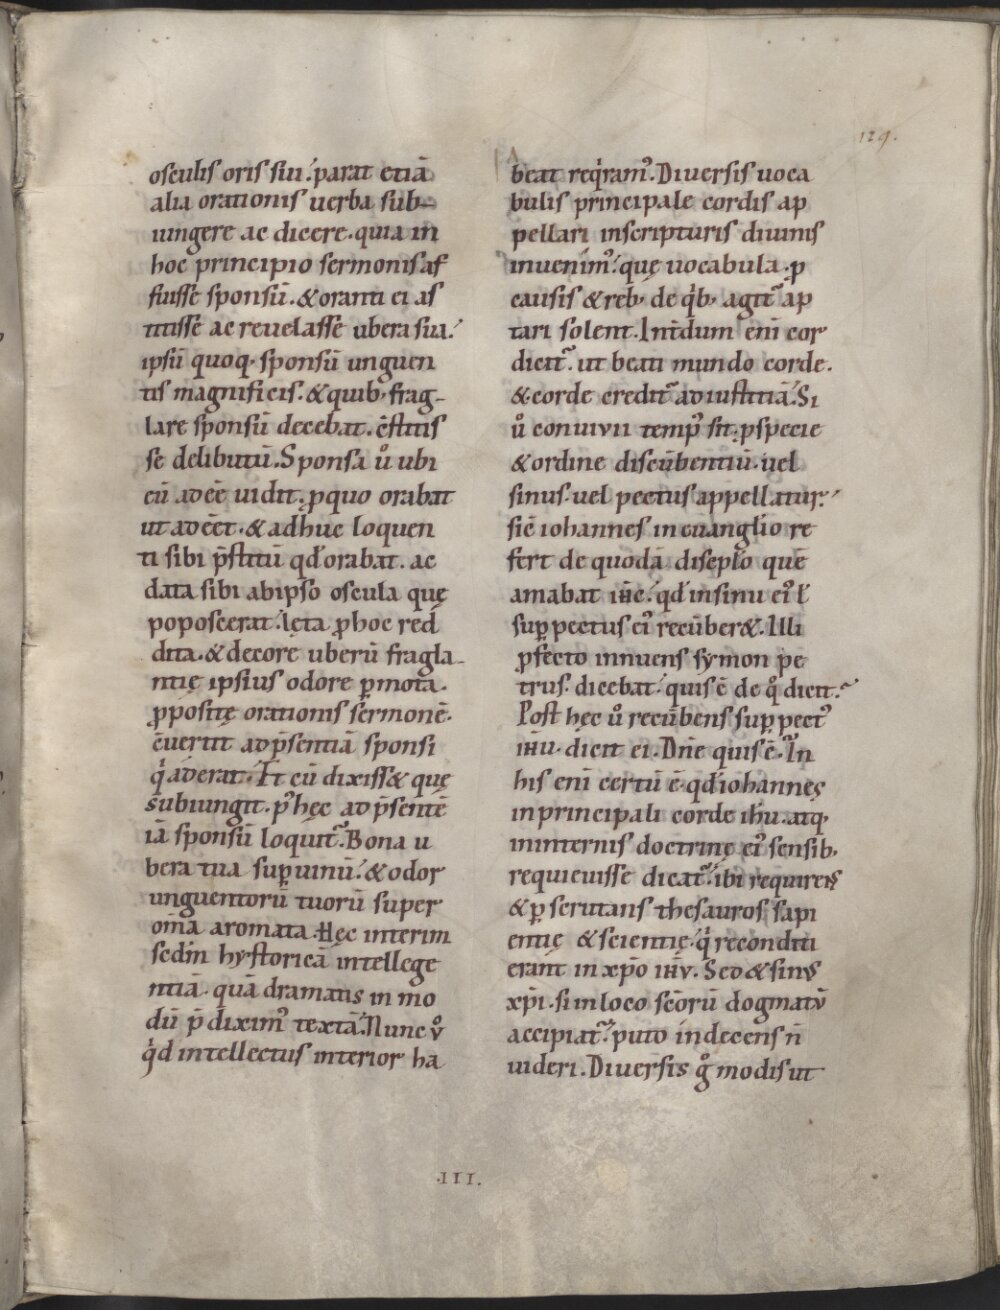 129.
osculis oris sui. parat etiā
alia orationis uerba sub-
iungere ac dicere. quia in
hoc principio sermonis af
fuisse sponsū. & oranti ei as
titisse ac reuelasse ubera sua.
ipsū quoq; sponsū unguen
tis magnificis. & quib; frag-
lare sponsū decebat. ēstitis
se delibutū. Sponsa ů ubi
eū adeē uidit. ꝓ quo orabat
ut adēet. & adhuc loquen
ti sibi p̄stitū qd̓ orabat. ac
data sibi ab ipso oscula quę
poposcerat. lęta ꝓ hoc red
dita. & decore uberū fragla-
ntię ipsius odore ꝑmota.
ꝓpositę orationis sermonē.
ēuertit ad p̄sentiā sponsi
qͥ aderat. Et cū dixiss& quę
subiungit. pꝰ hęc ad p̄sentē
iā sponsū loquit᷑. Bona u
bera tua suꝑ uinū. & odor
unguentorū tuorū super
om̄a aromata. Hęc interim
sedm̄ hystoricā intellege
ntiā. quā dramatis in mo
dū p̄diximꝰ textā. Nunc ů
qͥd intellectus interior ha
beat reqͥramꝰ. Diuersis uoca
bulis principale cordis ap
pellari in scripturis diuinis
inuenimꝰ. quę uocabula. ꝓ
causis & reb; de qͥb; agit᷑ ap
tari solent. Int̄dum eni cor
dicit᷑. ut beati mundo corde.
& corde credit᷑ ad iustitiā. Si
ů conuiuii tempꝰ sit. ꝓ specie
& ordine discūbentiū. uel
sinus. uel pectus appellatur.
sic̄ iohannes in euanglio re
fert de quodā discplo quē
amabat ih̄c. qd̓ in sinu eiꝰ l̓
suꝑ pectus eiꝰ recūber&. Illi
ꝓfecto innuens symon pe
trus. dicebat. quis ē de qͦ dicit.
Post hęc ů recūbens suꝑ pectꝰ
ih̄u. dicit ei. Dn̄e quis ē. In
his eni certū ē. qd̓ iohannes
in principali corde ih̄u. atq;
in internis doctrinę eiꝰ sensib;
requieuisse dicat᷑. ibi requirens
& ꝑscrutans thesauros sapi
entię & scientię. qͥ reconditi
erant in xp̄o ih̄u. Sed & sinꝰ
xp̄i. si in loco sc̄orū dogmatū
accipiat᷑. puto indecens n̄
uideri. Diuersis gͦ modis ut
.III.